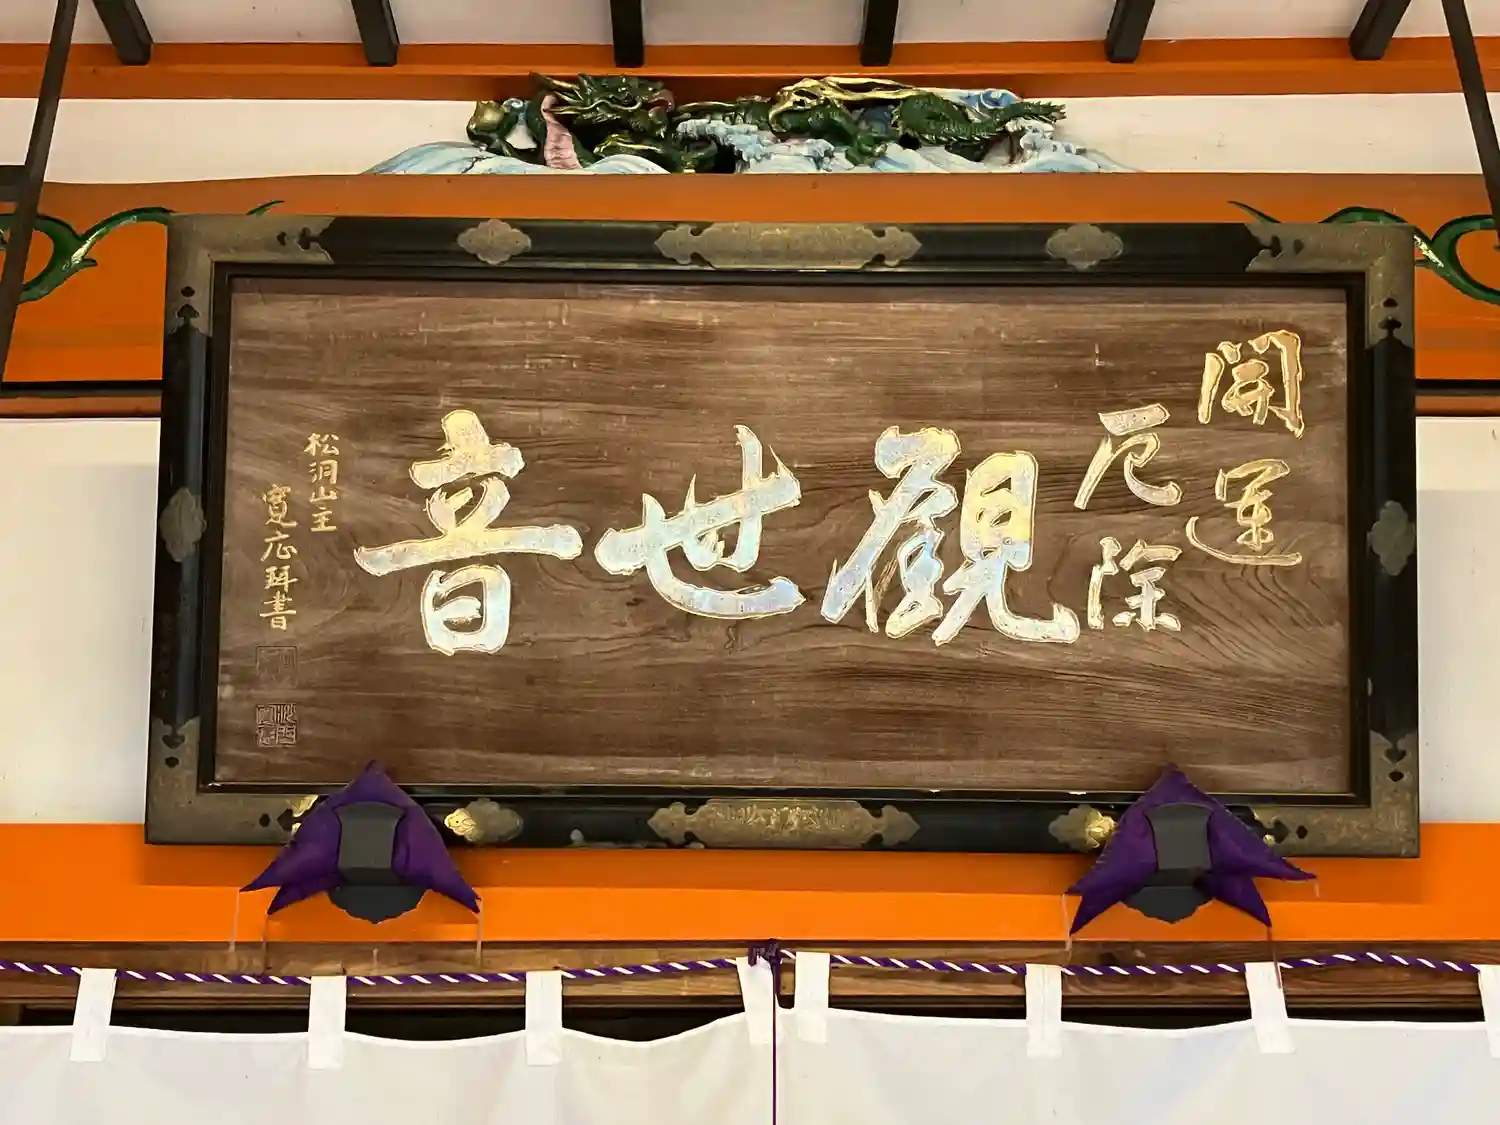 開運
厄除
觀世音
松洞山主
寛応拜書